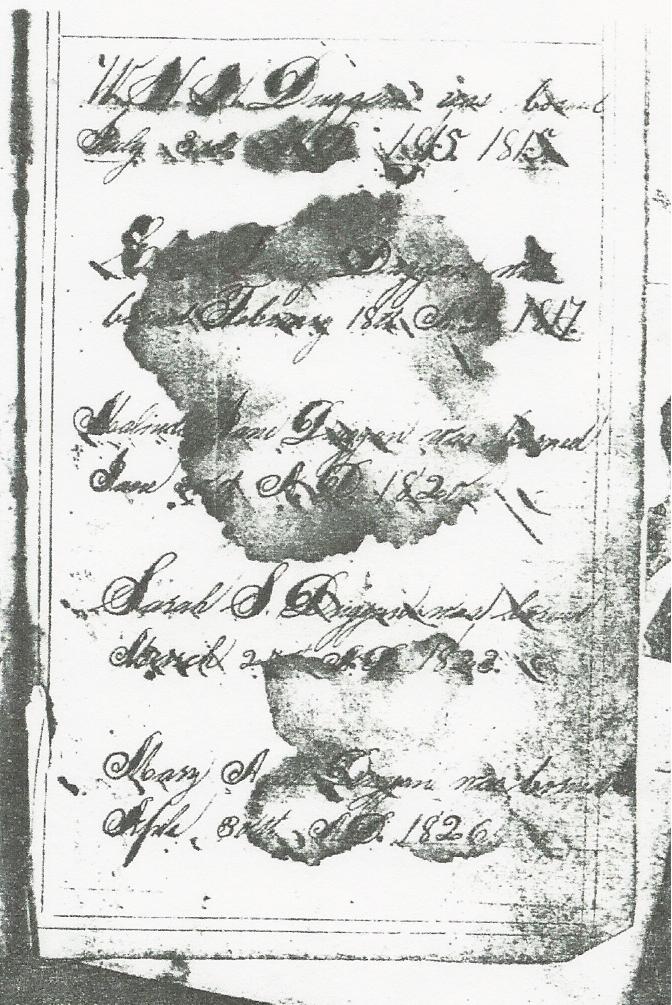 W. H. H. Duggan was born
July 3rd A.D. 1815 1815
Duggan was
borned Febuary 18th A.D. 1817
Malinda Jane Duggan was borned
A.D. 182
Sarah S. Duggan was born
March 2nd A.D. 1822
Mary A Duggan was borned
Aprl. 30th A.D. 1826